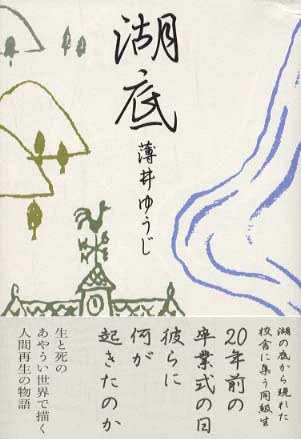 湖底
薄井ゆうじ
湖の底から現れた
校舎に集う同級生
20年前の
卒業式の日
彼らに
何が
起きたのか
生と死の
あやうい世界で描く
人間再生の物語